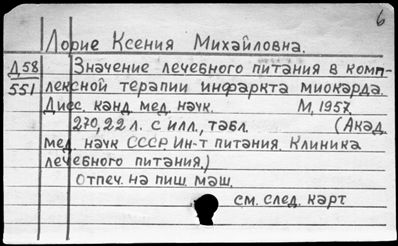 6
Лорие Ксения Михайловна.
Д58 Значение лечебного питания в комп-
551 лексной терапии инфаркта миокарда.
Дисс. канд. мед. наук. М, 1957.
270, 22 л. с илл., табл. (Акад.
мед. наук СССР. Ин-т питания. Клиника
лечебного питания.)
Отпеч. на пиш. маш.
см. след. карт